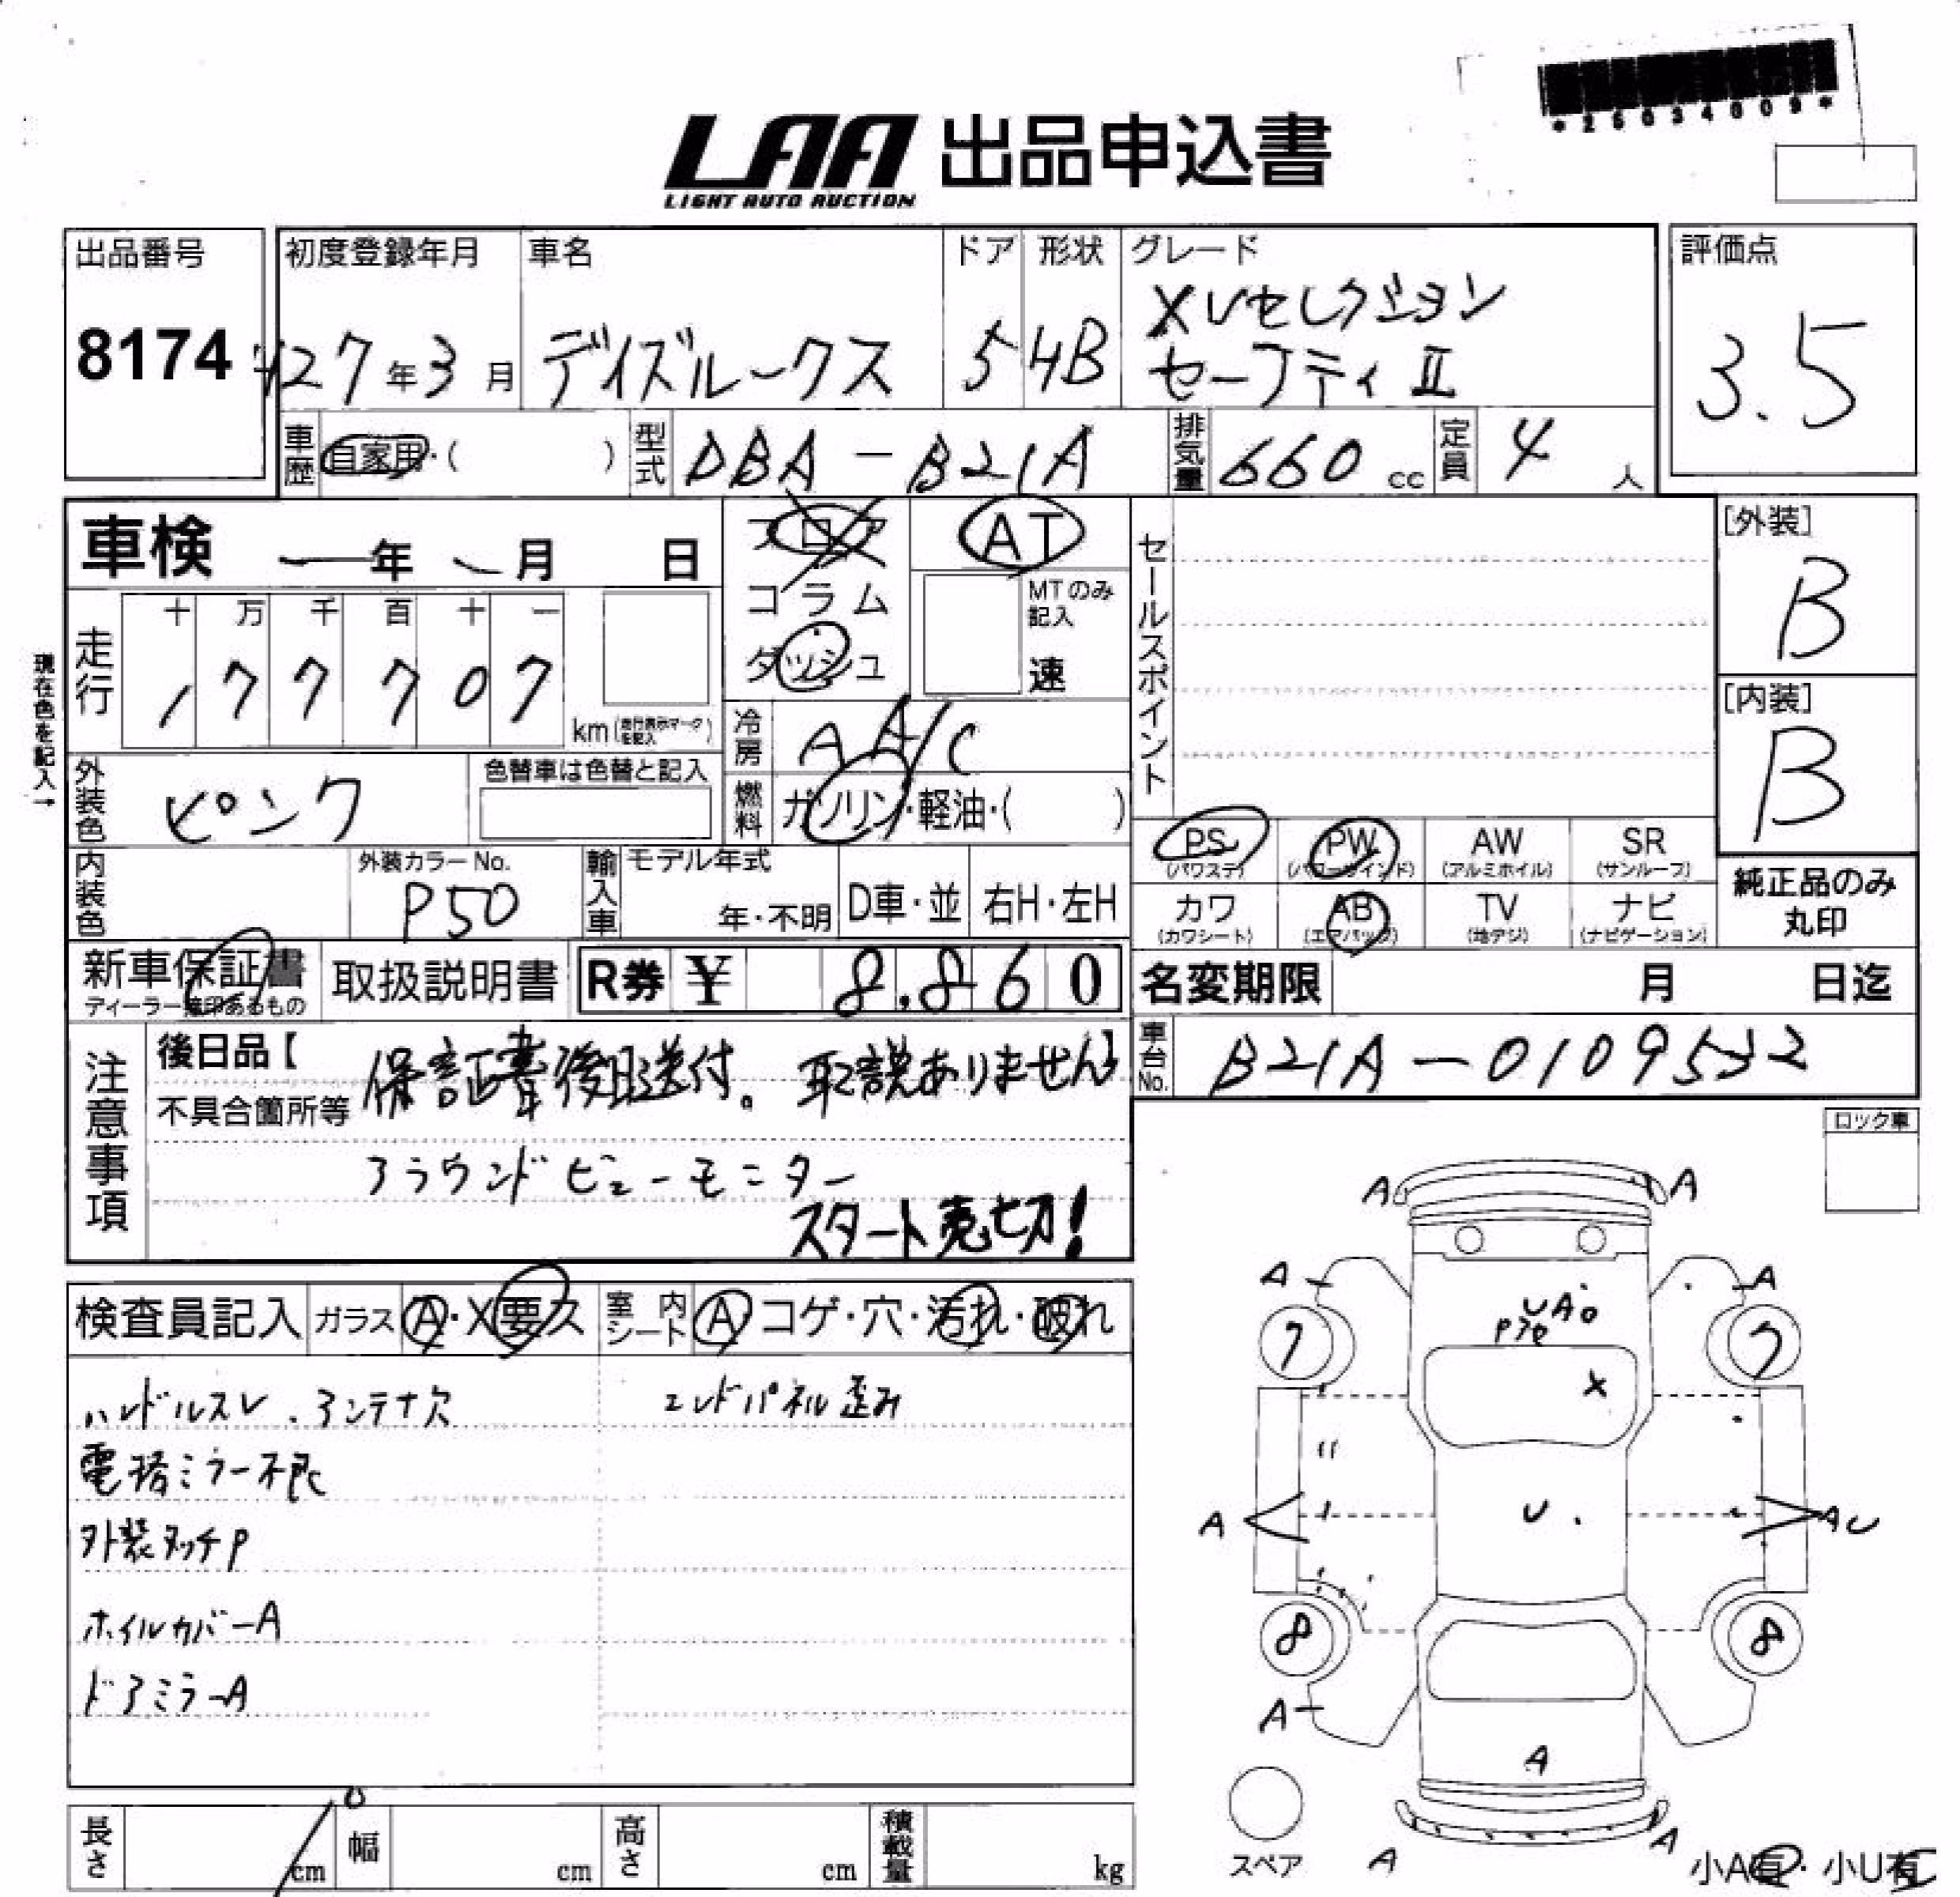 *25034009*
LAA 出品申込書
LIGHT AUTO AUCTION
出品番号 初度登録年月 車名 ドア 形状 グレード 評価点
8174 H27年3月 デイズルークス 5 HB XVセレクション 3.5
セーフティⅡ
車歴 自家用・( ) 型式 DBA-B21A 排気量 660 cc 定員 4 人
車検 年 月 日 フロア AT セールスポイント [外装]
コラム MTのみ記入 B
走行 十 万 千 百 十 一 ダッシュ 速
1 7 7 7 0 7 km (走行表示マークを記入) [内装]
現在色を記入→ 冷房 AA/C B
外装色 ピンク 色替車は色替と記入 燃料 ガソリン・軽油・( )
PS (パワステ) PW (パワーウインド) AW (アルミホイル) SR (サンルーフ)
内装色 外装カラーNo. P50 輸入車 モデル年式 年・不明 D車・並 右H・左H カワ (カワシート) AB (エアバッグ) TV (地デジ) ナビ (ナビゲーション) 純正品のみ丸印
新車保証書 取扱説明書 R券 ¥ 8.860 名変期限 月 日迄
ディーラー捺印あるもの
注意事項 後日品【 保証書後日送付。取説ありません】 車台No. B21A-0109532
不具合箇所等
アラウンドビューモニター
スタート売切!
ロック車
検査員記入 ガラス A・X要ス 室内シート A コゲ・穴・汚れ・破れ
ハンドルスレ.アンテナ欠 エンドパネル歪み
電格ミラー不良
外装タッチP
ホイルカバーA
ドアミラーA
A A
A A
U A
7 7
X
U
A AU
8 8
A
A
A A
スペア 小A有・小U有
長さ cm 幅 cm 高さ cm 積載量 kg